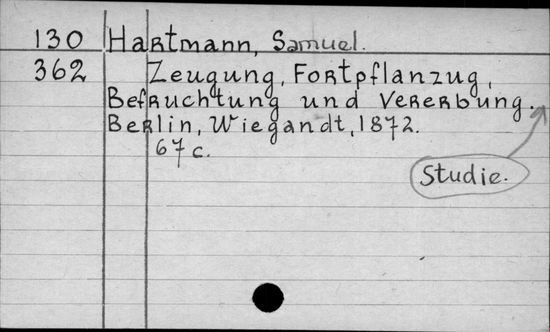 130 Hartmann, Samuel.
362 Zeugung, Fortpflanzug,
Befruchtung und Vererbung.
Berlin, Wiegandt, 1872.
67 c.
Studie.